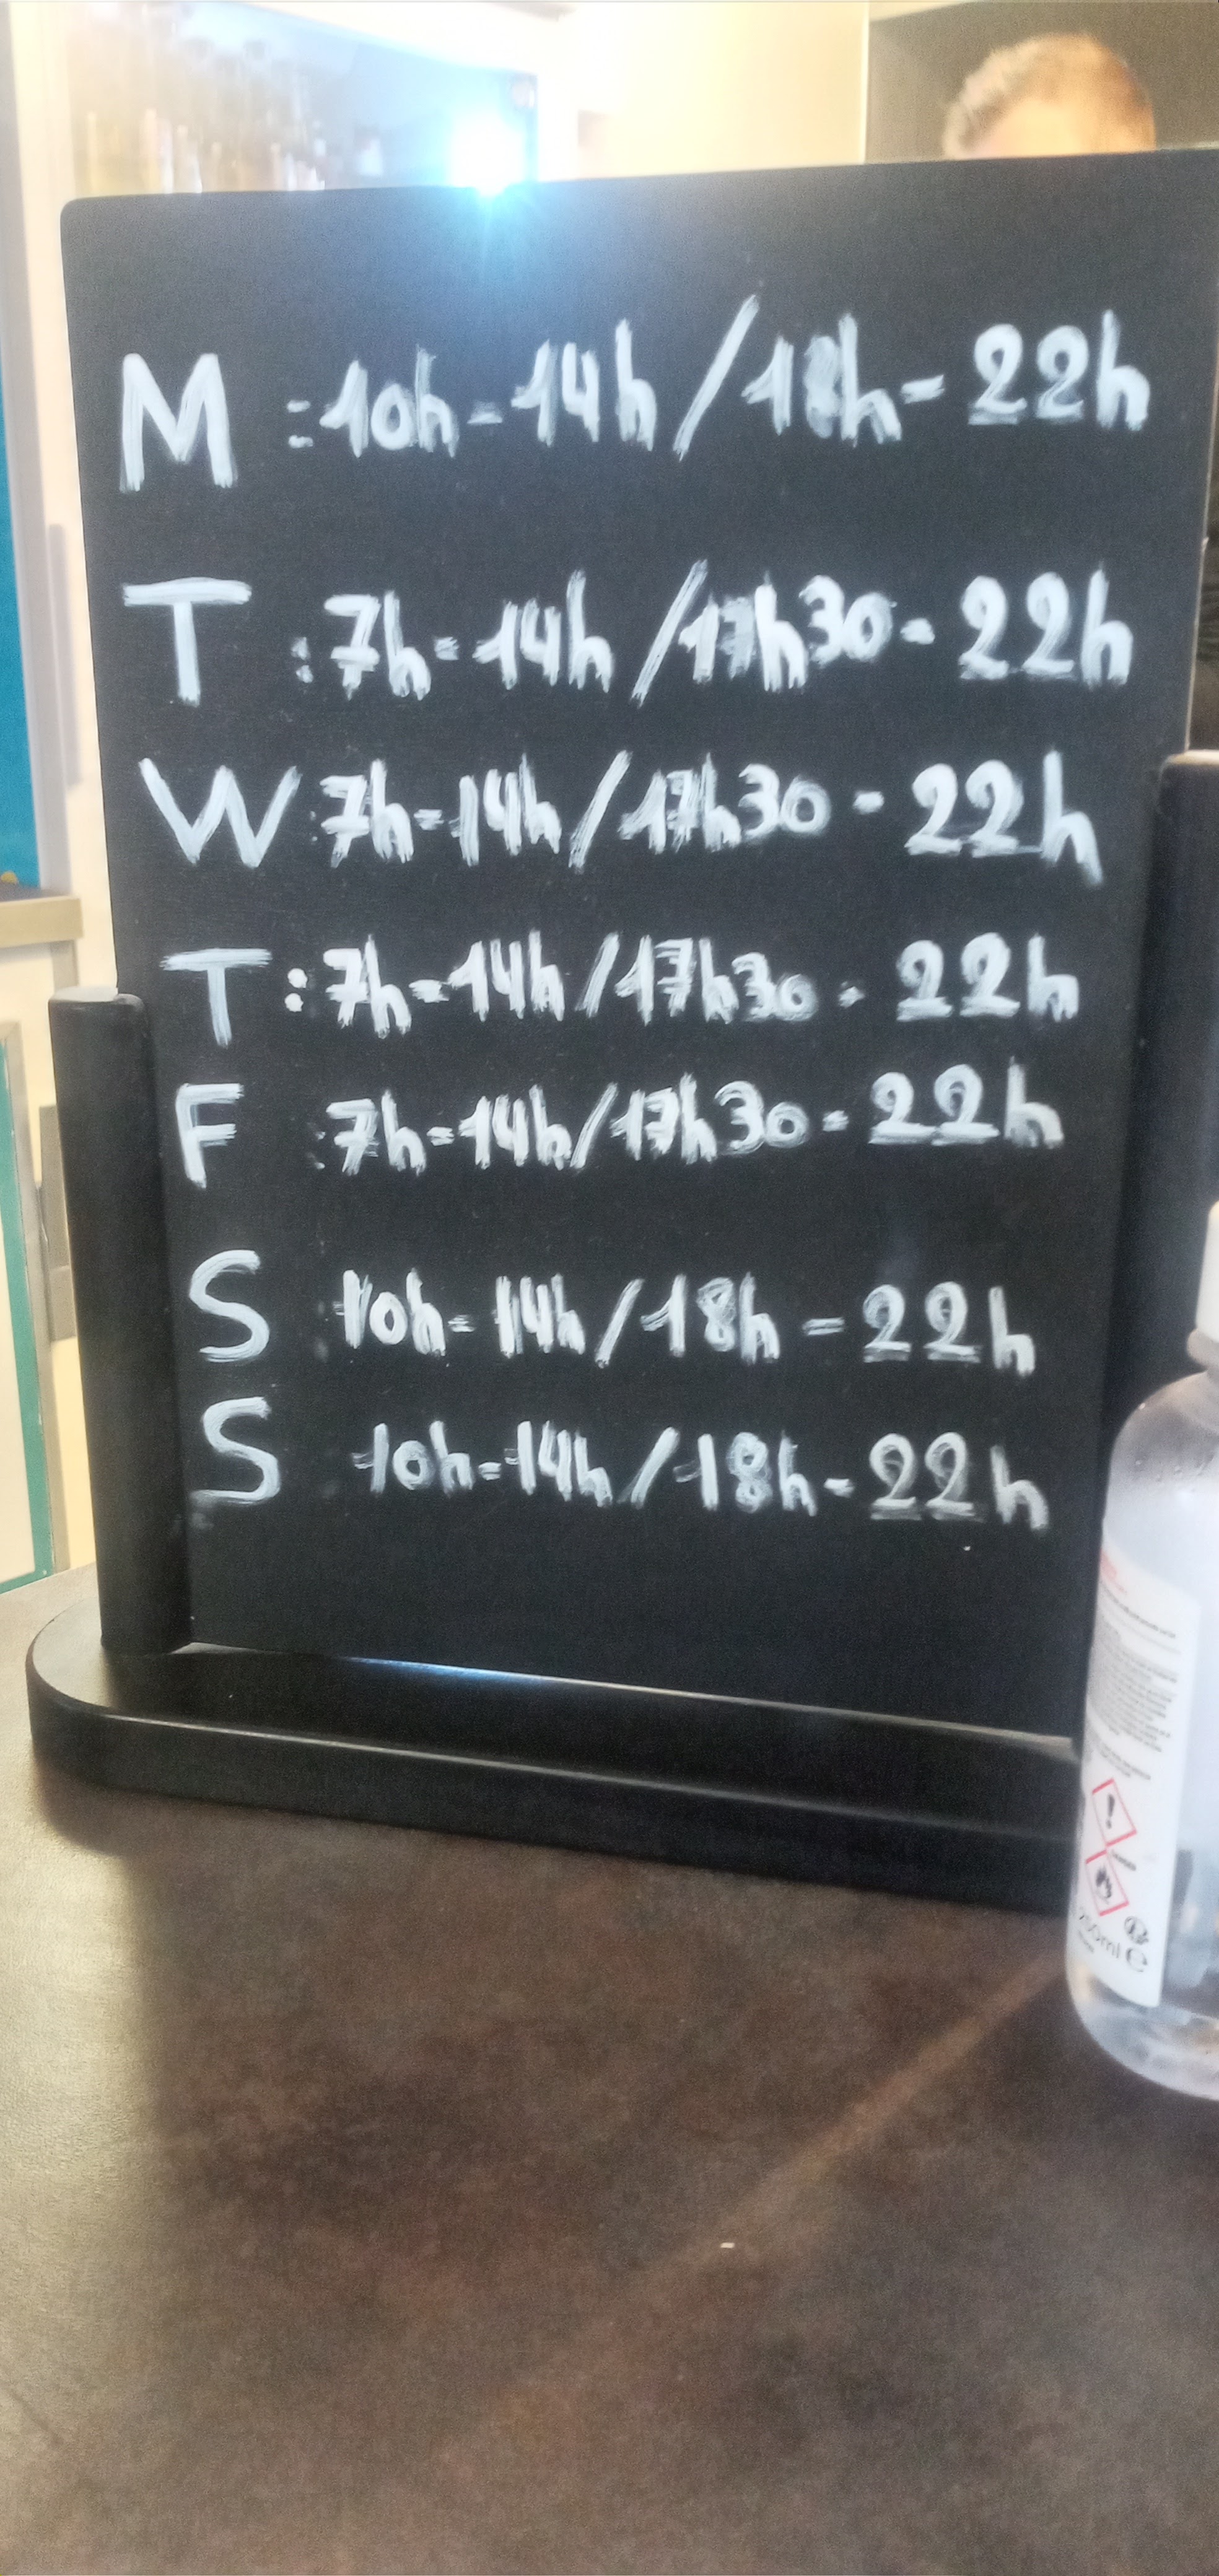 M : 10h - 14h / 18h - 22h
T : 7h - 14h / 17h30 - 22h
W : 7h - 14h / 17h30 - 22h
T : 7h - 14h / 17h30 - 22h
F : 7h - 14h / 17h30 - 22h
S 10h - 14h / 18h - 22h
S 10h - 14h / 18h - 22h